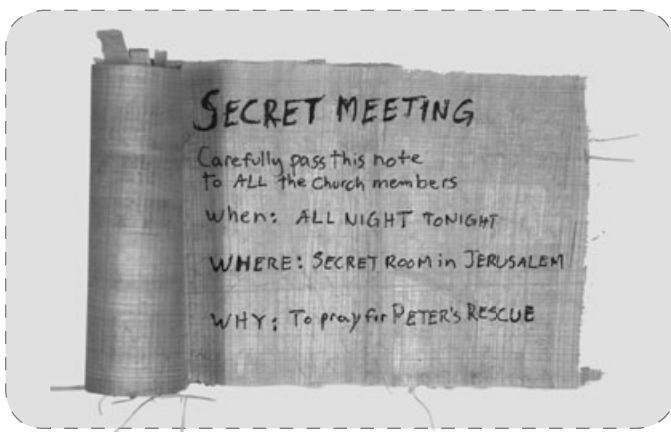 SECRET MEETING
Carefully pass this note
to ALL the Church members
When: ALL NIGHT TONIGHT
WHERE: SECRET ROOM in JERUSALEM
WHY: To pray for PETER'S RESCUE